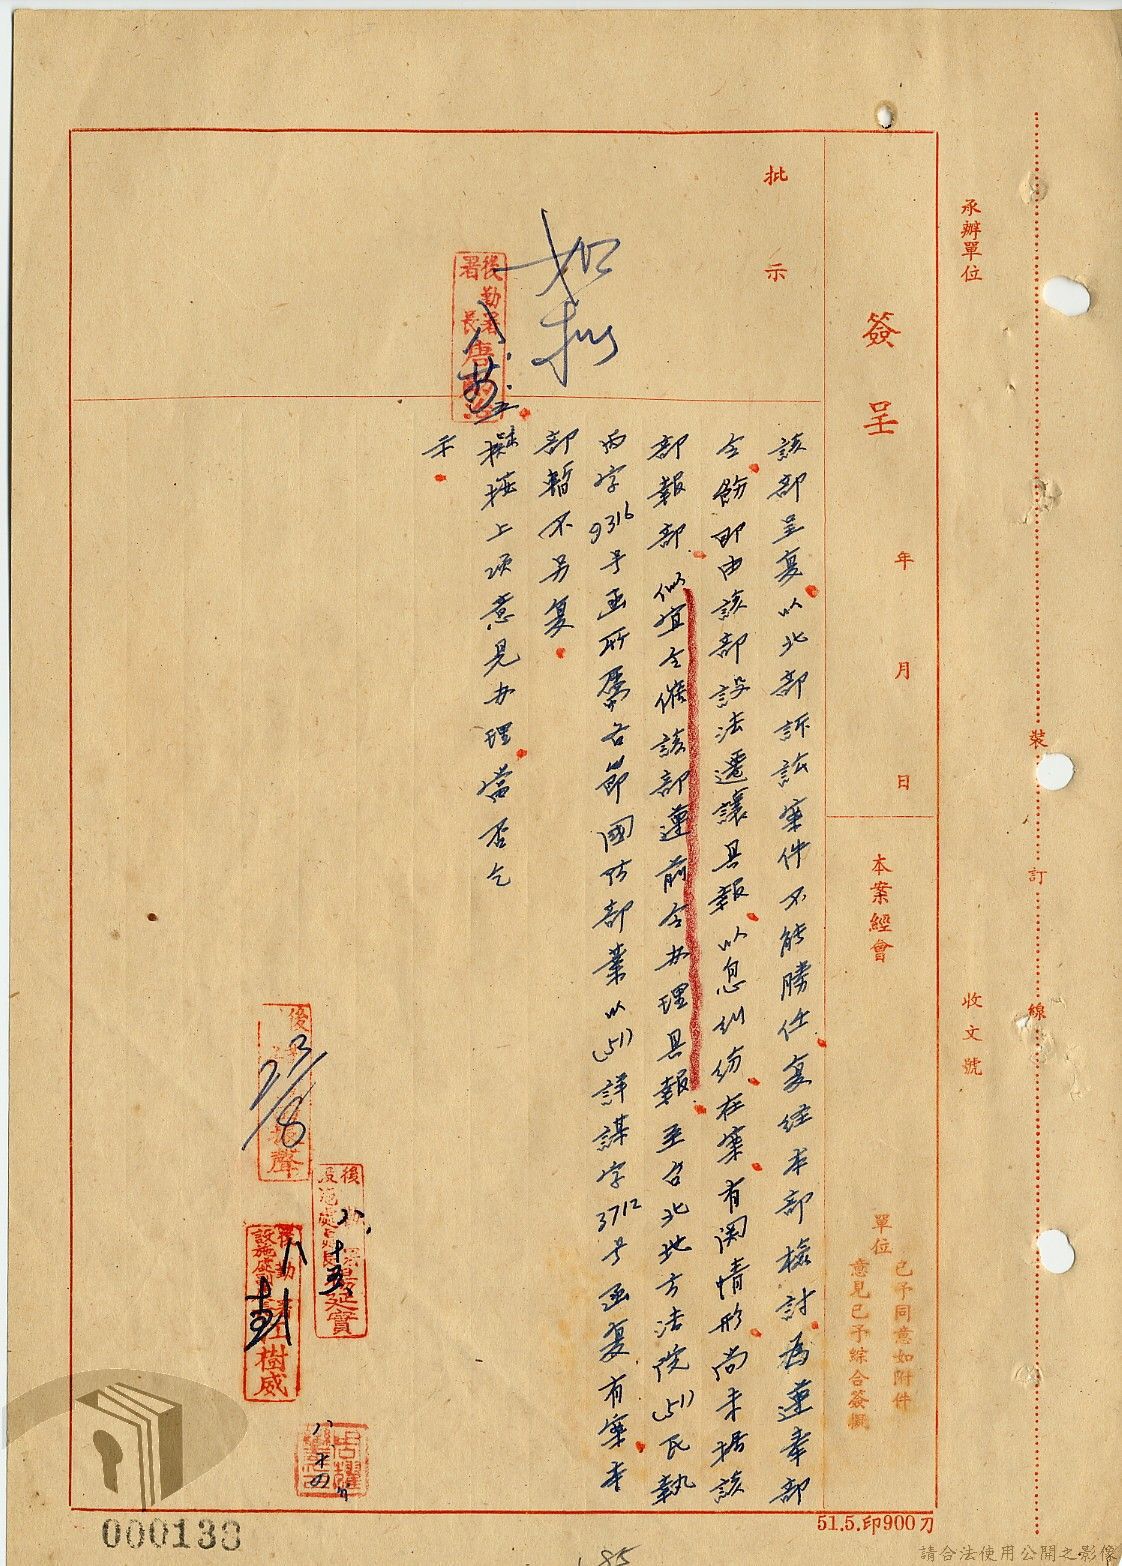 承辦單位
收文號
裝
訂
線
簽呈
年 月 日
本案經會
單位
已予同意如附件
意見已予綜合簽擬
批示
如擬
後勤署署長唐
該部呈复以北部訴訟案件不能勝任复經本部檢討為遵奉部
令飭即由該部設法遷讓具報以息糾紛在案有関情形尚未据該
部報部似宜令催該部遵前令办理具報至台北地方法院(51)民執
丙字9316号函所囑各節國防部業以(51)詳謀字3712号函复有案本
部暫不另复
擬按上項意見办理當否乞
示
23/8
聲
八、十五
延實
樹威
周耀
八、十四
51.5.印900刀
000138
85
請合法使用公開之影像